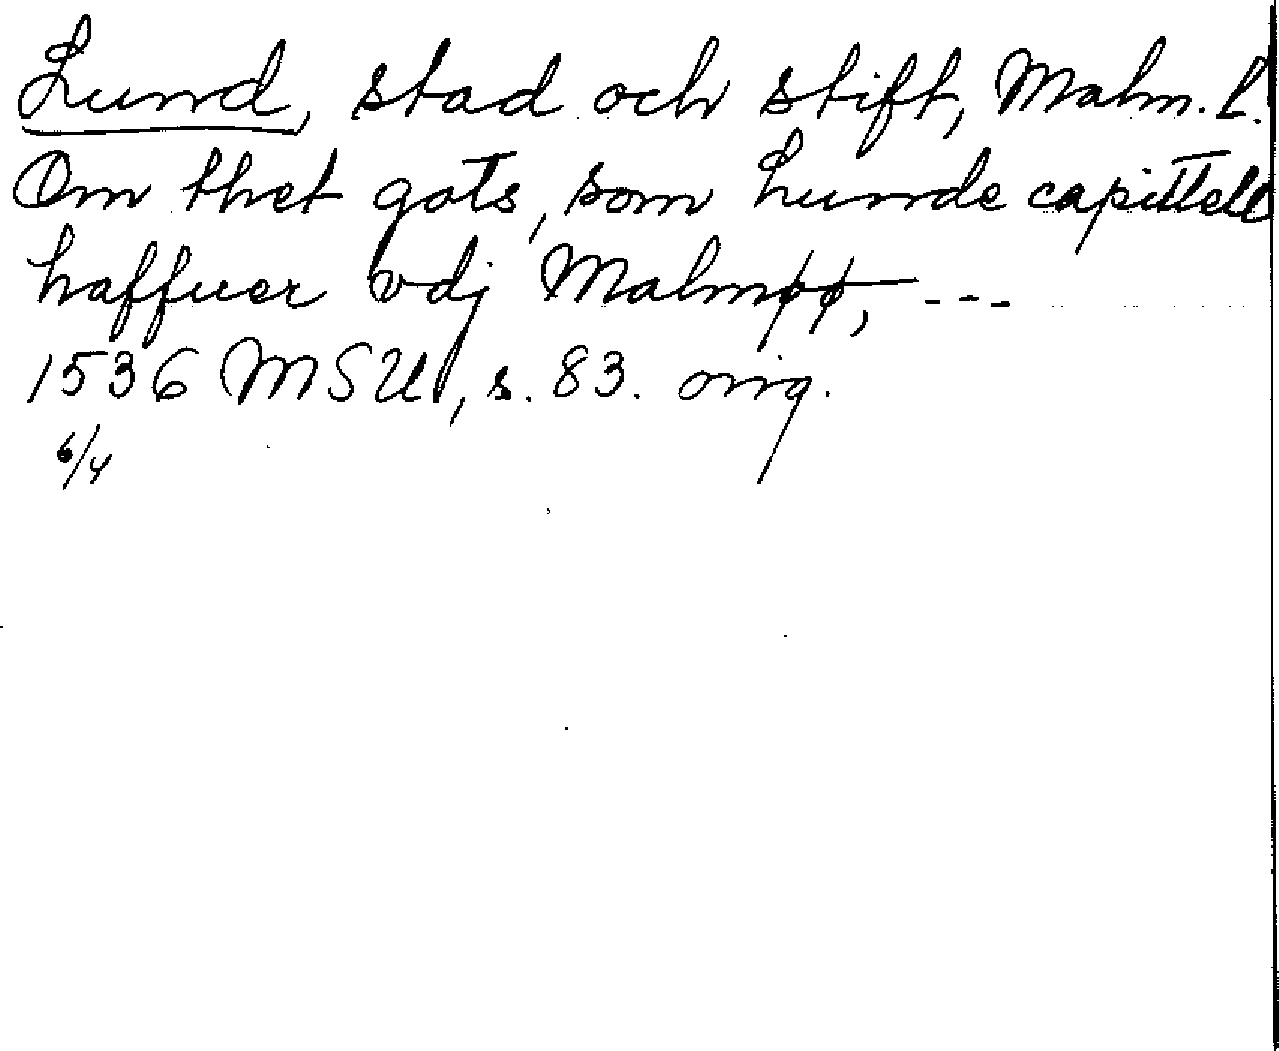 Lund, stad och stift, Malm. l.
Om thet gots, som Lunde capittell
haffuer vdj Malmøø, ---
1536 MSU, s. 83. orig.
6/4